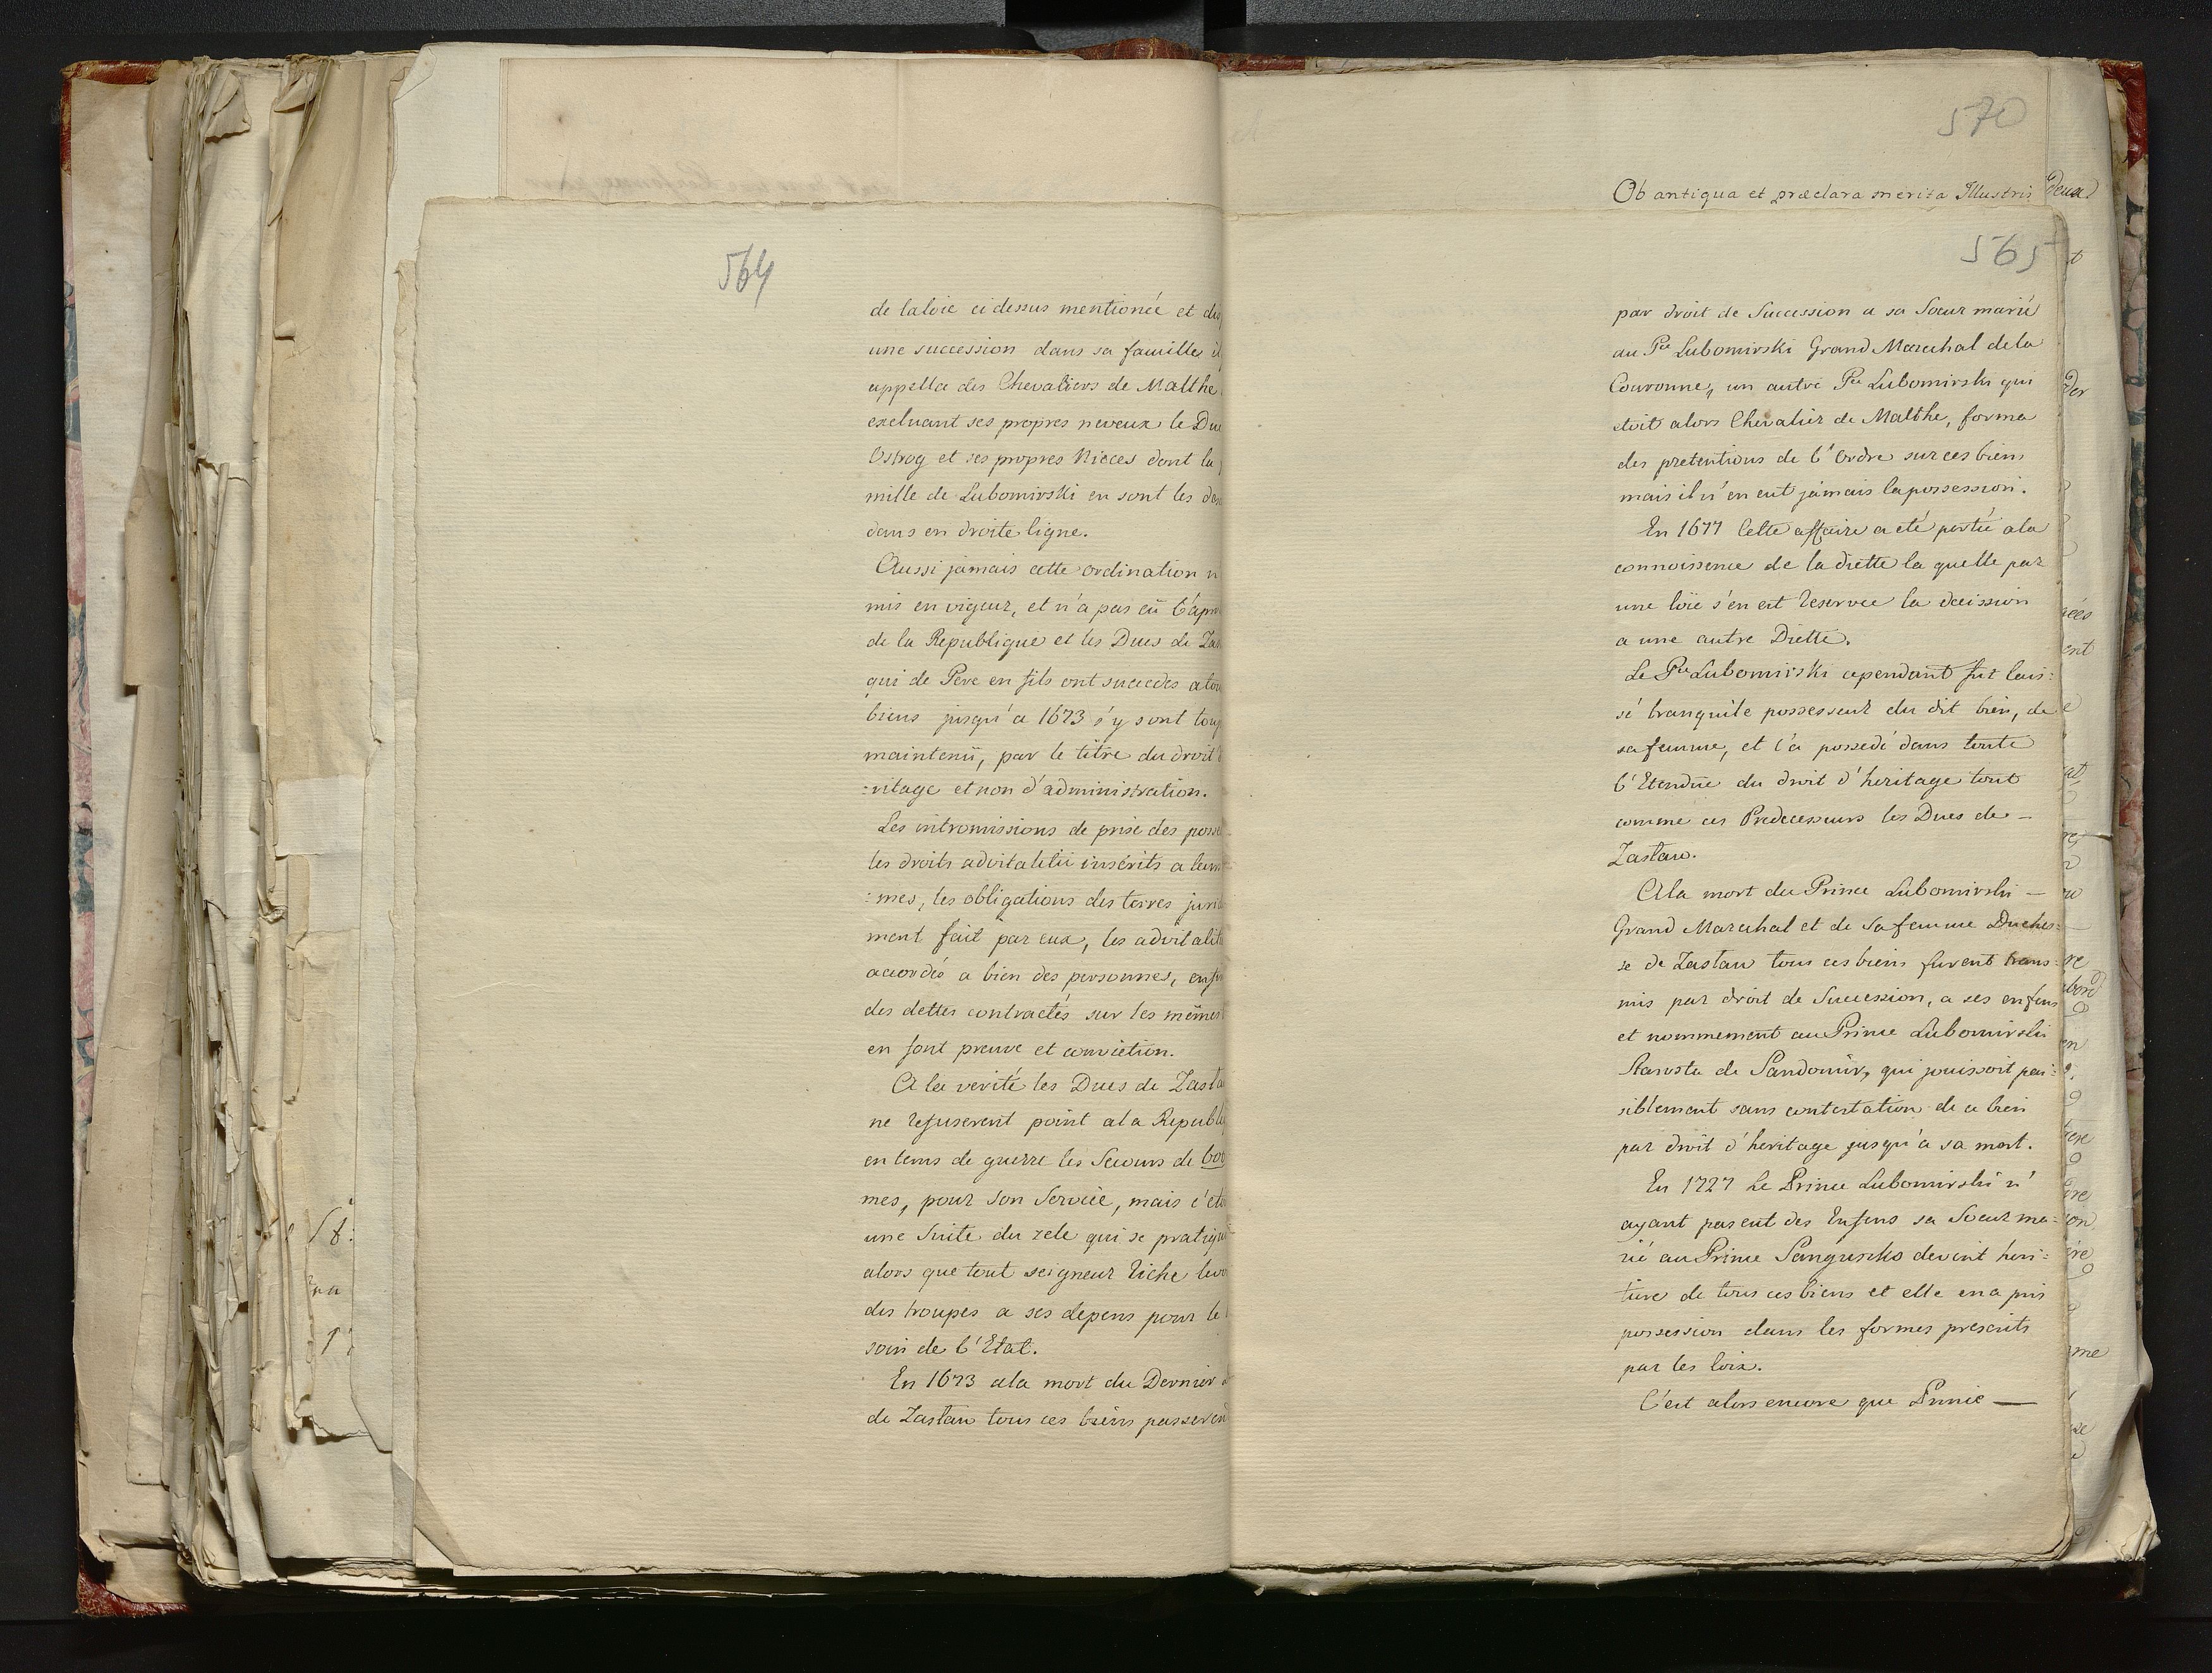 564
de laloie ci dessus mentionée et
une succession dans sa familles
appella des Chevaliers de Malthe
excluant ses propres neveux le Duc
Ostrog et ses propres Nieces dont la
mille de Lubomirski en sont les
dans en droite ligne.
Aussi jamais cette ordination n
mis en vigeur, et n'a pas eü l'apro
de la Republique et les Ducs de Zas
qui de Pere en fils ont succedes a
biens jusqu'a 1673 s'y sont touj
maintenü, par le titre du droit
:ritage et non d'administration.
Les intromissions de prise des posse
les droits advitalitii inscrits a leur
:mes, les obligations des terres jurid
ment fait par eux, les advitalit
accordés a bien des personnes, enfin
des dettes contractés sur les mêmes
en font preuve et conviction.
A la verité les Ducs de Zasla
ne refuserent point ala Republiq
en tems de guerre les Secours de 600
mes, pour son Service, mais c'eto
une Suite du zele qui se pratiqu
alors que tout seigneur riche levo
des troupes a ses depens pour le
soin de l'Etat.
En 1673 ala mort du Dernier
de Zaslaw tous ces biens passerent
570
Ob antiqua et præclara merita Illustris
565
par droit de Succession a sa Soeur marié
au Pce Lubomirski Grand Marechal dela
Couronne, un autre Pce Lubomirski qui
etoit alors Chevalier de Malthe, forma
des pretentions de l'Ordre sur ces biens
mais il n'en eut jamais lapossession.
En 1677 Cette affaire a eté portée ala
connoissence de la diette la quelle par
une loïe s'en est reservee la decission
a une autre Diette.
Le Pce Lubomirski cependant fut lais:
sé tranquile possesseur du dit bien, de
safemme, et l'a possedé dans toute
l'Etendüe du droit d'heritage tout
comme ces Predecesseurs les Ducs de —
Zaslaw.
Ala mort du Prince Lubomirski —
Grand Marechal et de Safemme Duches:
se de Zaslaw tous ces biens furent trans:
mis par droit de Succession, a ses enfens
et nommement au Prince Lubomirski
Staroste de Sandomir, qui jouissoit pai:
siblement sans contestation de ce bien
par droit d'heritage jusqu'a sa mort.
En 1727 Le Prince Lubomirski n'
ayant pas eut des Enfens sa Soeur ma:
rié au Prince Sangusçko devint heri:
tiere de tous ces biens et elle en a pris
possession dans les formes prescrits
par les loix.
C'est alors encore que Prince —